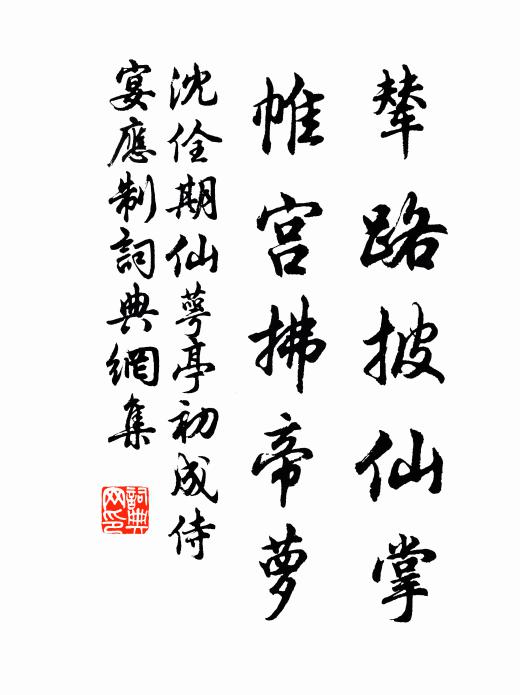 輦路披仙掌
帷宮拂帝蘿
沈佺期仙萼亭初成侍
宴應制詞典網集
詞典
网印